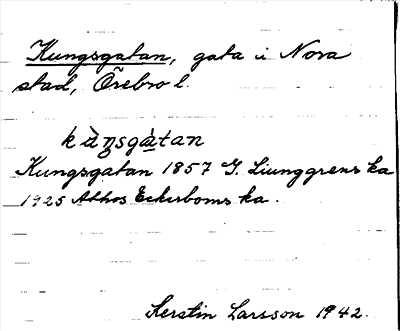 Kungsgatan, gata i Nora
stad, Örebro l.
kùŋsgàtan
Kungsgatan 1857 G. Ljunggrens ka
1925 Athos Eckerboms ka.
Kerstin Larsson 1942.